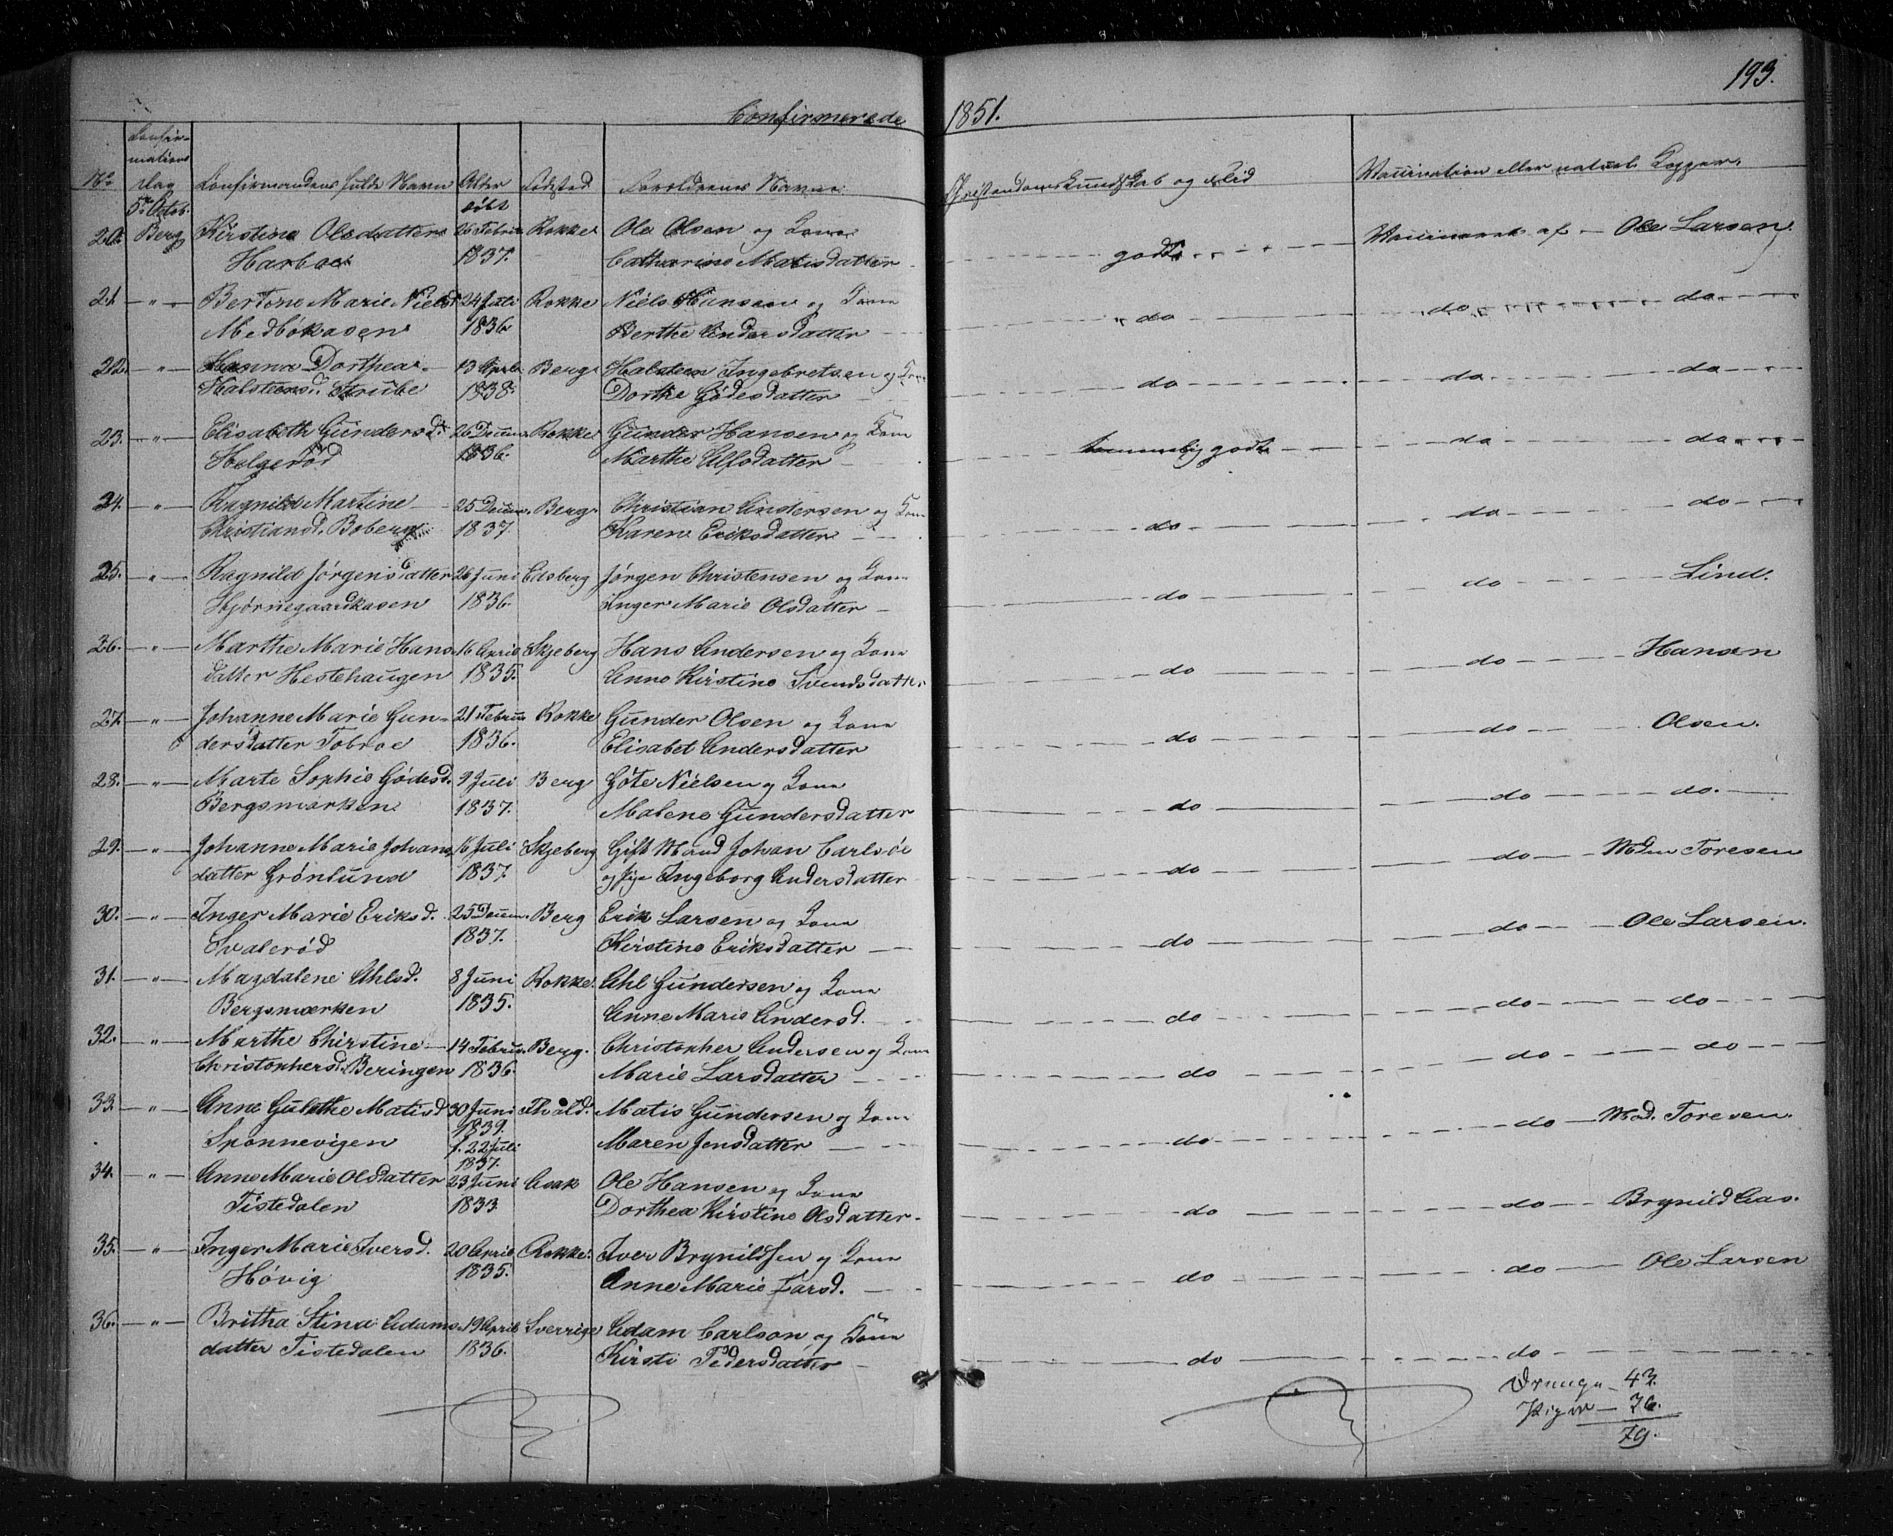 193.
Confirmerede 1851.
No Confirmations Dag Confirmandens fulde Navn Alter födt Födested Forældrenes Navne Christendoms Kundskab og Flid Vaccination eller naturl. Kopper.
5te Octob.
20. Berg Kirstine Olsdatter 26 Febru Rokke Ole Olsen og Kone godt Vaccineret af Ole Larsen
Harboe 1837. Catharine Matisdatter
21 " Bertone Marie Niels 24 Juli Rokke Niels Hansen og Kone do do do
Medbökasen 1836 Berthe Andersdatter
22. " Hanna Dorthea 13 April Berg Halsteen Ingebretsen og Kone do do do
Halsteensd. Strube 1838. Dorthe Gödesdatter
23. " Elisabeth Gundersd. 26 Decem. Rokke Gunder Hansen og Kone temmelig godt do do
Helgeröd 1836. Marthe Alfsdatter
24. " Ragnild Martine 25 Decem. Berg Christian Andersen og Kone do do do
Christiansd. Boberg 1837 Karen Eriksdatter
25. " Ragnild Jörgensdatter 26 Juni Edsberg Jörgen Christensen og Kone do do Lind.
Hjörnegaardkasen 1836. Inger Marie Olsdatter
26. " Marthe Marie Hans 16 April Skjeberg Hans Andersen og Kone do do Hansen
datter Hestehaugen 1835. Anne Kirstine Svendsdatter
27. " Johanne Marie Gun- 21 Febru Rokke Gunder Olsen og Kone do do Olsen.
dersdatter Tobroe 1836. Elisabet Andersdatter
28. " Marte Sophie Gödesd. 9 Juli Berg Göte Nielsen og Kone do do do.
Bergsmarken 1837. Malene Gundersdatter
29. " Johanne Marie Johans 16 Juli Skjeberg Gift Mand Johan Carlsöe do do Mdm Toresen
datter Grönlund 1837. og Pige Ingeborg Andersdatter
30. " Inger Marie Eriksd. 25 Decem. Berg Erik Larsen og Kone do do Ole Larsen.
Svaleröd 1837. Kirstine Eriksdatter
31. " Magdalene Ahlsd. 8 Juni Rokke. Ahl Gundersen og Kone do do do
Bergsmarken 1835. Anne Marie Andersd.
32. " Marthe Chirstine 14 Februr Berg. Christopher Andersen og Kone do do do
Christophersd. Beringen 1836 Marie Larsdatter
33. " Anne Gulethe Matisd 30 Juni Fhald. Matis Gundersen og Kone do do Mad. Toresen.
Sponnevigen 1839. Maren Jensdatter
f. 22 Juli
1837.
34. " Anne Marie Olsdatter 23 Juni Asak Ole Hansen og Kone do do Brynild Aas.
Tistedalen 1833 Dorthea Kirstine Olsdatter
35. " Inger Marie Iversd. 20 April Rokke. Iver Brynildsen og Kone do do Ole Larsen
Hövig 1835. Anne Marie Larsd.
36. " Britha Stina Adams 19 April Sverrige Adam Carlson og Kone do do
datter Tistedalen 1836. Kirsti Pedersdatter
Drenge 43.
Piger 36.
79.